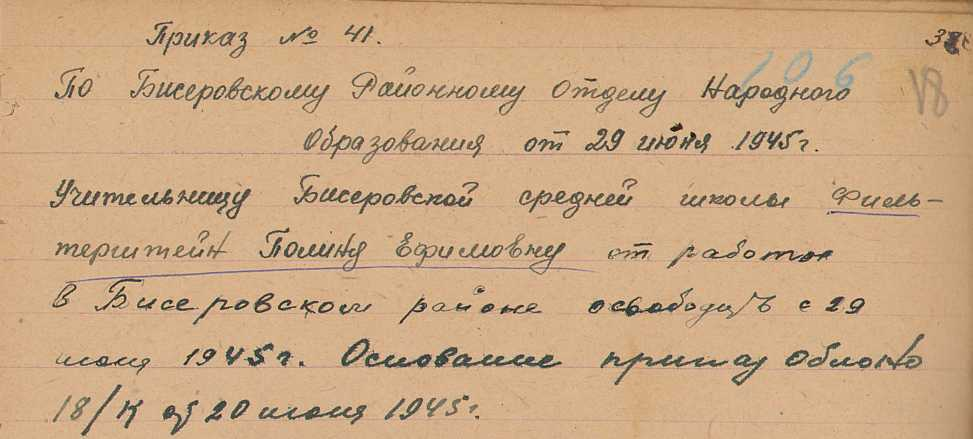 Приказ № 41.
106
18
По Бисеровскому Районному Отделу Народного
Образования от 29 июня 1945г.
Учительницу Бисеровской средней школы Филь-
терштейн Полину Ефимовну от работы
в Бисеровском районе освободить с 29
июня 1945г. Основание приказ Облоно
18/к от 20 июня 1945г.